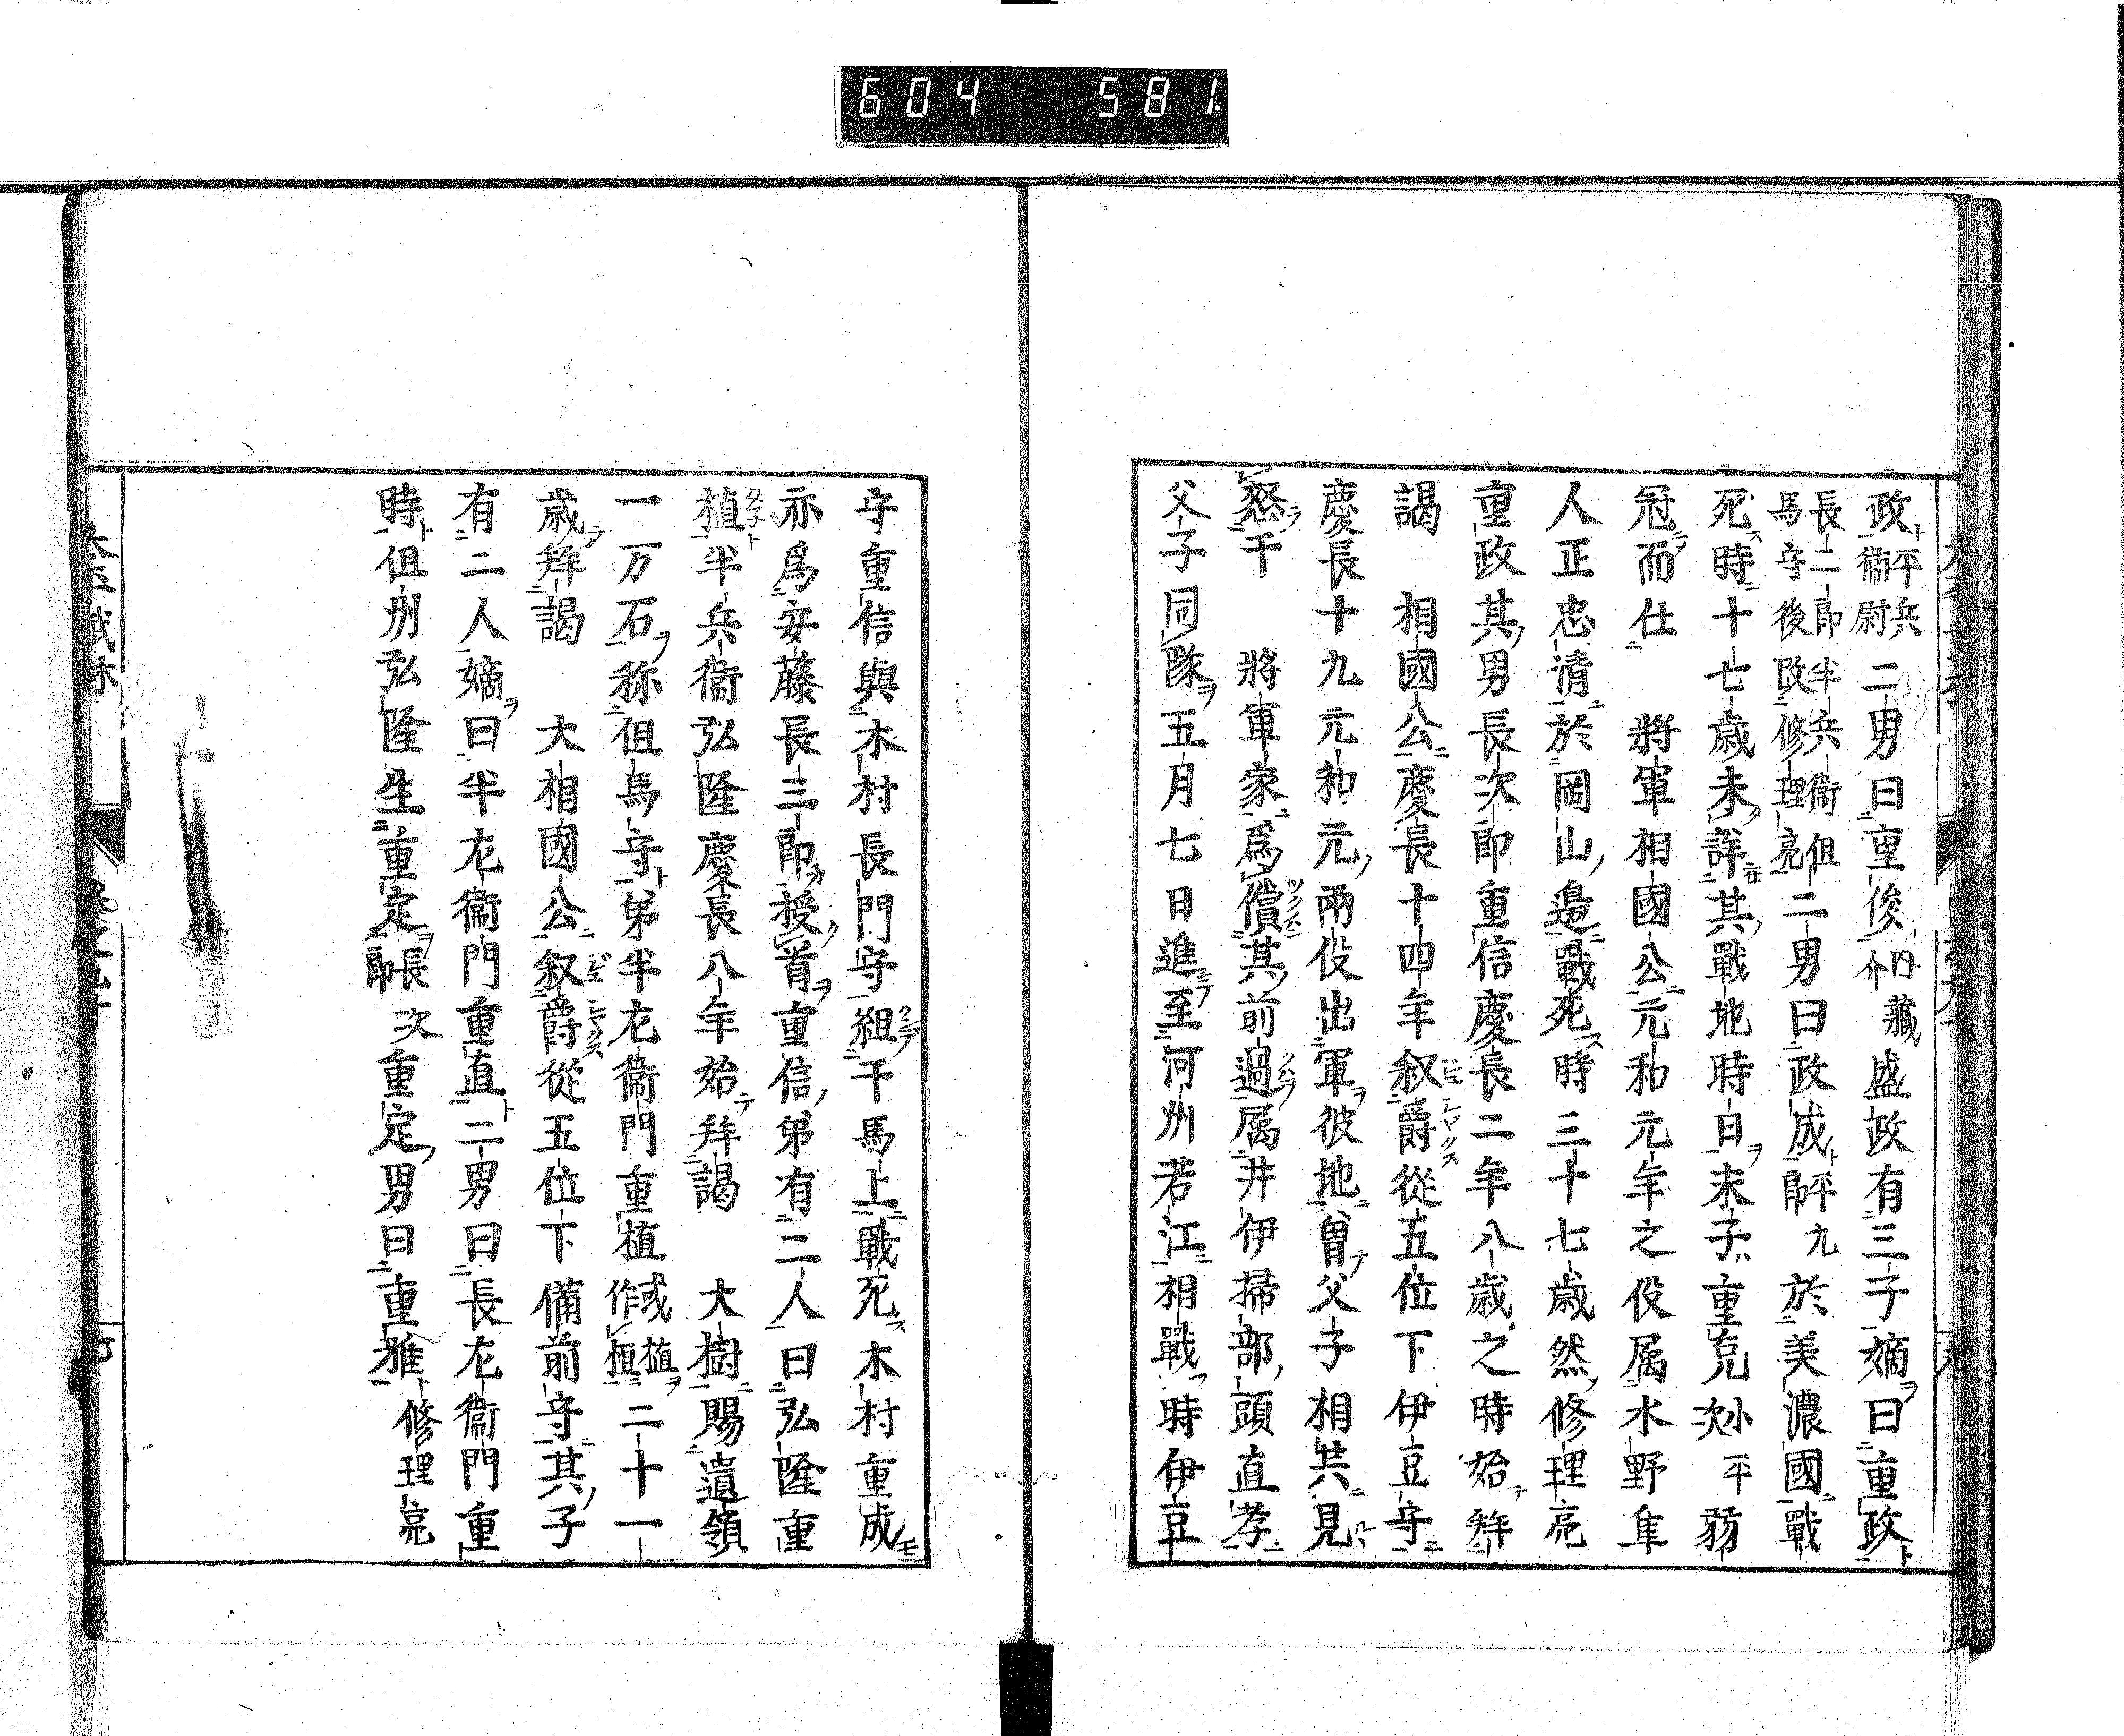 604 581
政平兵衞尉二男曰重俊内藏介盛政有三子嫡曰重政
長二郎半兵衞但馬守後改修理亮二男曰政成平九郎於美濃國戰
死時十七歳未詳其戰地時日末子重克小平次弱
冠而仕 將軍相國公元和元年之役属水野隼
人正忠清於岡山邉戰死時三十七歳然修理亮
重政其男長次郎重信慶長二年八歳之時始拜
謁 相國公慶長十四年叙爵從五位下伊豆守
慶長十九元和元兩役出軍彼地曽父子相共見
怒于 將軍家爲償其前過属井伊掃部頭直孝
父子同隊五月七日進至河州若江相戰時伊豆
守重信與木村長門守組于馬上戰死木村重成
亦爲安藤長三郎授首重信弟有二人曰弘隆重
植半兵衞弘隆慶長八年始拜謁 大樹賜遺領
一万石称但馬守弟半左衞門重植或植作恒二十一
歳拜謁 大相國公叙爵從五位下備前守其子
有二人嫡曰半左衞門重直二男曰長左衞門重
時但州弘隆生重定長次郎重定男曰重雅修理亮